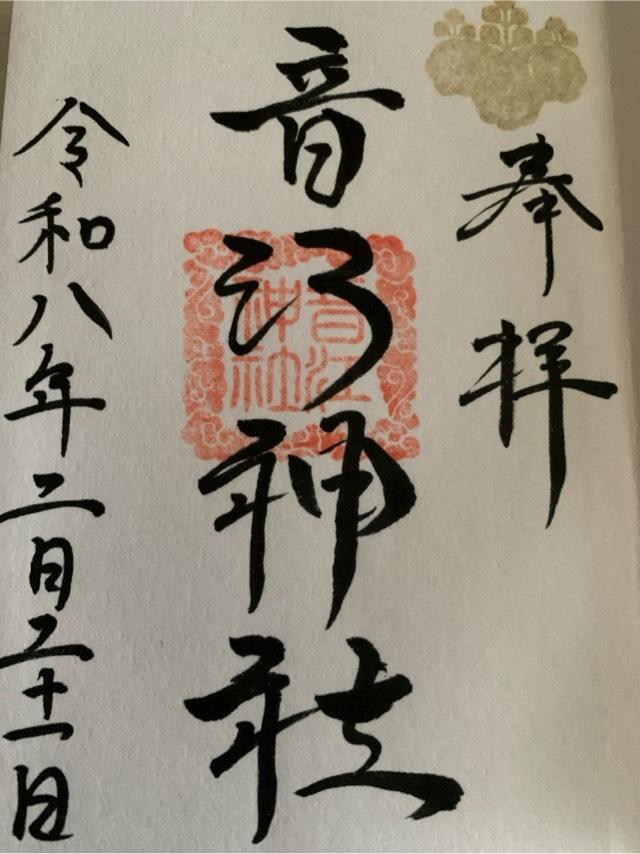 奉拝
音江神社
音江
神社
令和八年二月二十一日